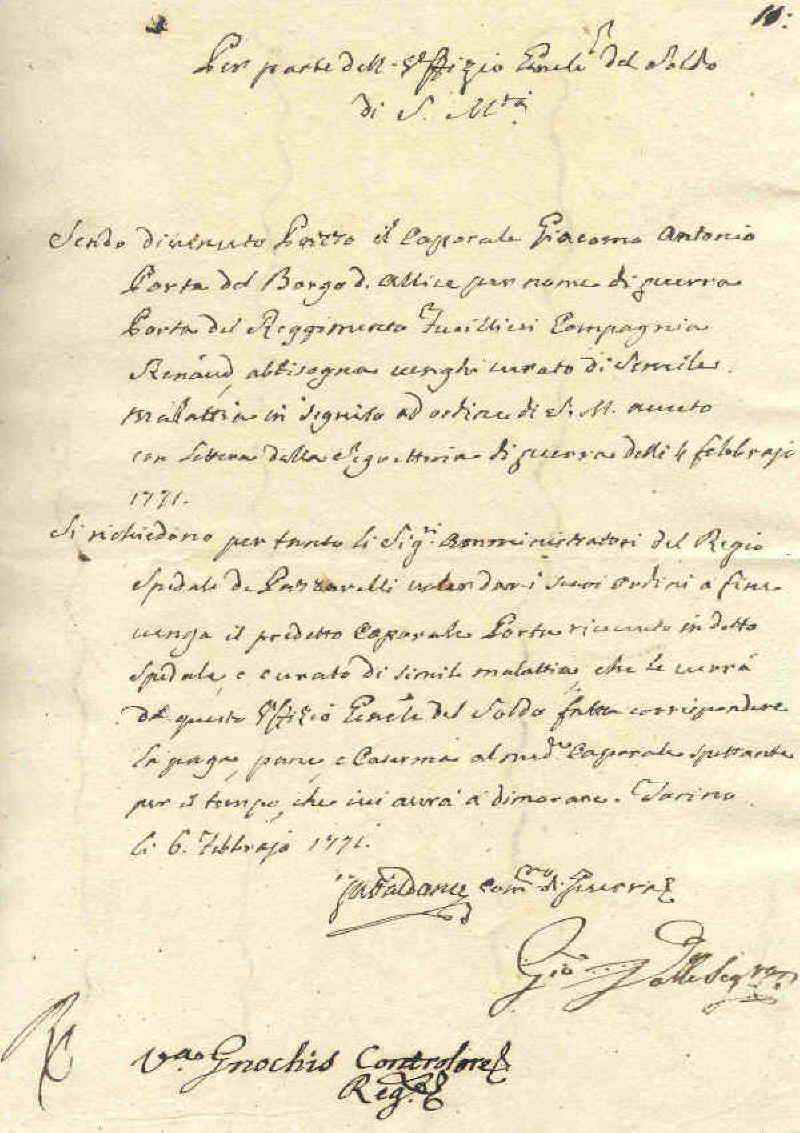 11:
Per parte dell'Uffizio Gen.le del Soldo
di S. M.tà
Sendo divenuto Pazzo il Caporale Giacomo Antonio
Porta del Borgo d. Allice per nome di guerra
Porta del Reggimento Fucillieri Compagnia
Renaud, abbisogna venghi curato di simile
malattia in seguito ad ordine di S. M. avuto
con lettera della Segretteria di guerra delli 4 febbrajo
1771.
Si richiedono per tanto li Sig.ri Amministratori del Regio
Spedale de Pazzarelli voler dar i suoi ordini a fine
venga il predetto Caporale Porta ricevuto in detto
Spedale, e curato di simile malattia, che le verrà
da questo Uffizio Gen.le del Soldo fatta corrispondere
la paga, pane, e Caserma al med.mo Caporale spettante
per il tempo, che ivi avrà a dimorare. Torino
li 6. Febbrajo 1771.
Com.rio di Guerra
Gio
V.a Gnochis Controlore
Reg.